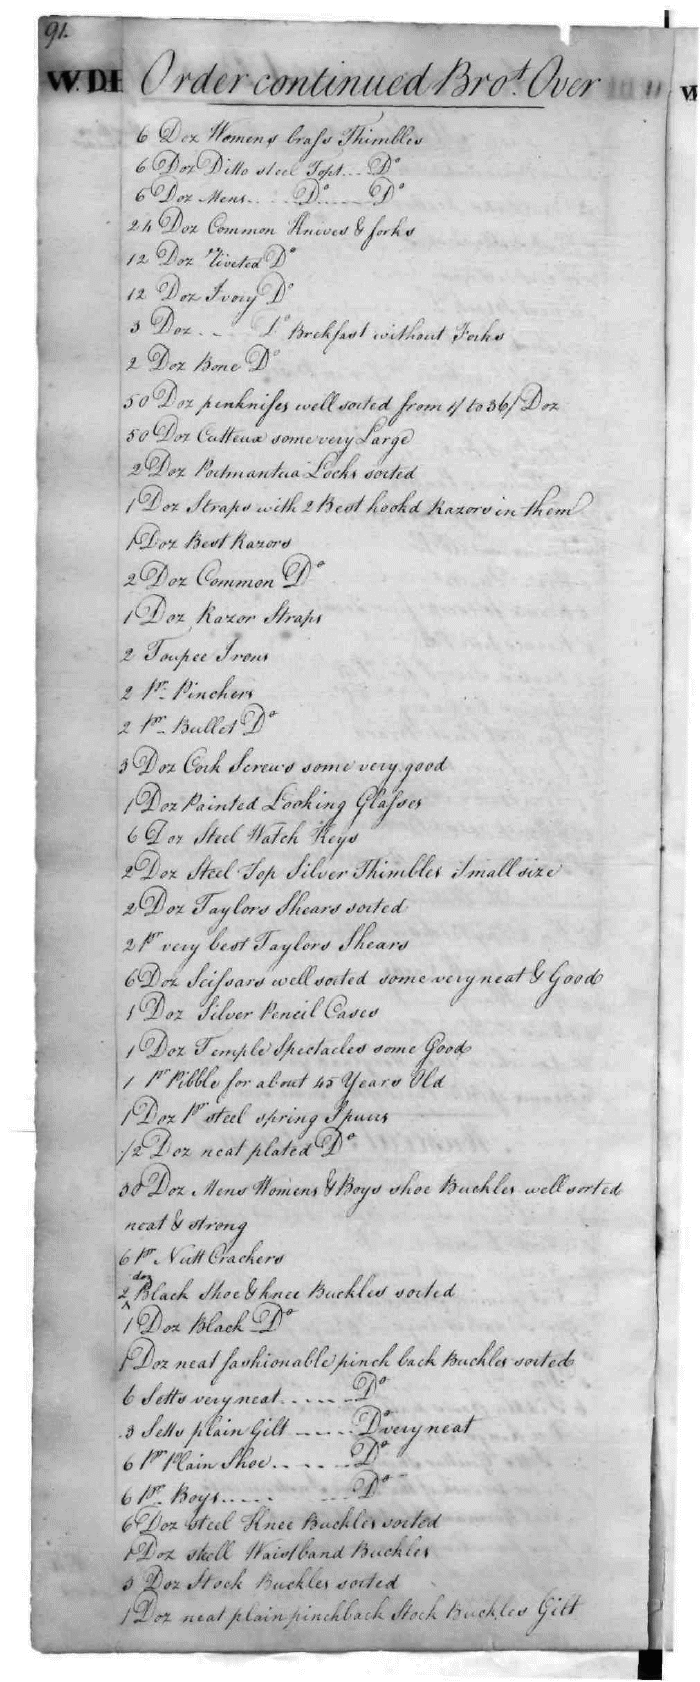 91.
W.DI Order continued Bro.t Over
6 Doz Womens brass Thimbles
6 Doz Ditto steel Topt... Do
6 Doz Mens..... Do...... Do
24 Doz Common Knives & forks
12 Doz riveted Do
12 Doz Ivory Do
3 Doz.. - Do Brekfast without Forks
2 Doz Bone Do
50 Doz penknifes well sorted from 4/ to 36/ Doz
50 Doz Cutteux some very Large
2 Doz Portmantua Locks sorted
1 Doz Straps with 2 Best hookd Razors in them
1 Doz Best Razors
2 Doz Common Do
1 Doz Razor Straps
2 Toupee Irons
2 Pr. Pinchers
2 Pr. Bullet Do
3 Doz Cork Screws some very good
1 Doz Painted Looking Glasses
6 Doz Steel Watch Keys
2 Doz Steel Top Silver Thimbles Small size
2 Doz Taylors Shears sorted
2 Pr very best Taylors Shears
6 Doz Scissars well sorted some very neat & Good
1 Doz Silver Pencil Cases
1 Doz Temple Spectacles some Good
1 Pr Pibble for about 45 Years Old
1 Doz Pr steel spring Spurs
1/2 Doz neat plated Do
30 Doz Mens Womens & Boys shoe Buckles well sorted
neat & strong
6 Pr Nutt Crackers
2 doz Black Shoe & knee Buckles sorted
1 Doz Black Do
1 Doz neat fashionable pinch back Buckles sorted
6 Setts very neat...... Do
3 Setts plain Gilt ..... Do very neat
6 Pr Plain Shoe..... Do
6 Pr. Boys..... ... Do
6 Doz steel Knee Buckles sorted
1 Doz skell Waistband Buckles
3 Doz Stock Buckles sorted
1 Doz neat plain pinchback Stock Buckles Gilt